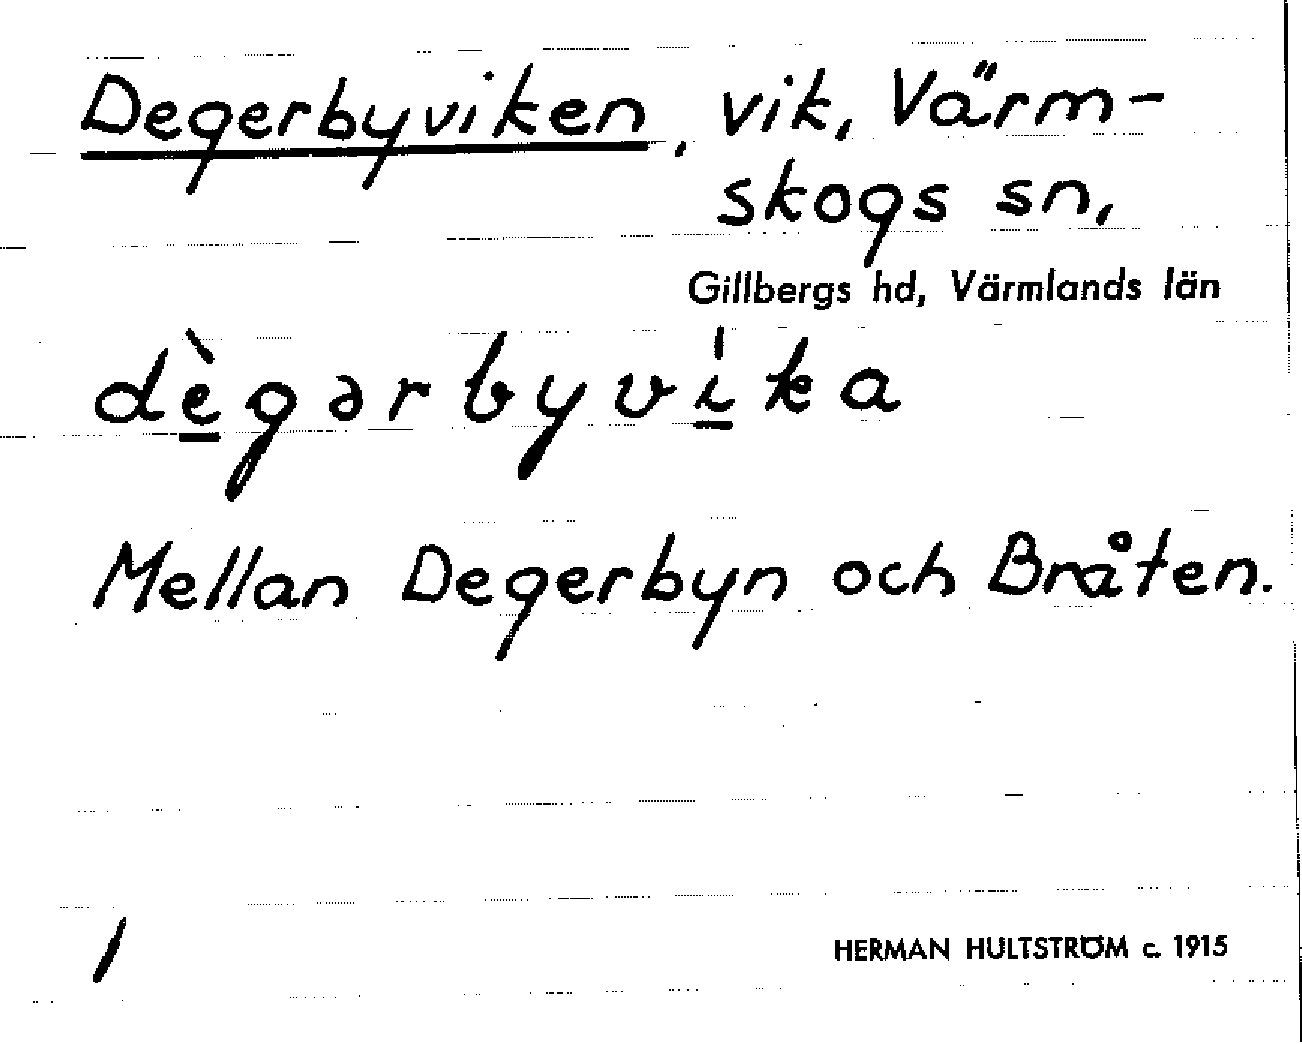 Degerbyviken, vik, Värm-
skogs sn,
Gillbergs hd, Värmlands län
dègərbyvika
Mellan Degerbyn och Bråten.
1
HERMAN HULTSTRÖM c. 1915